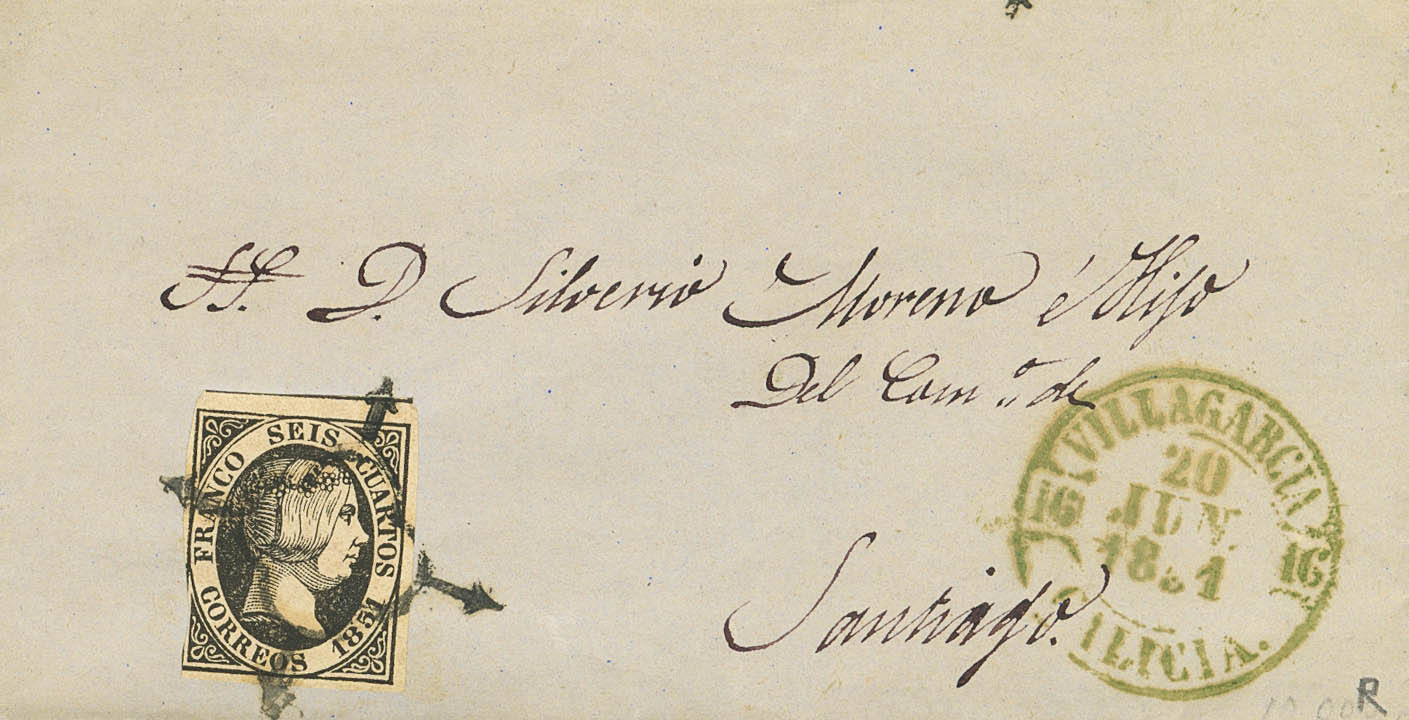 SS. D. Silverio Moreno é Hijo
Del Com.º de
Santiago.
FRANCO SEIS CUARTOS
CORREOS 1851
VILLAGARCIA
20
JUN
16 16
GALICIA.
R